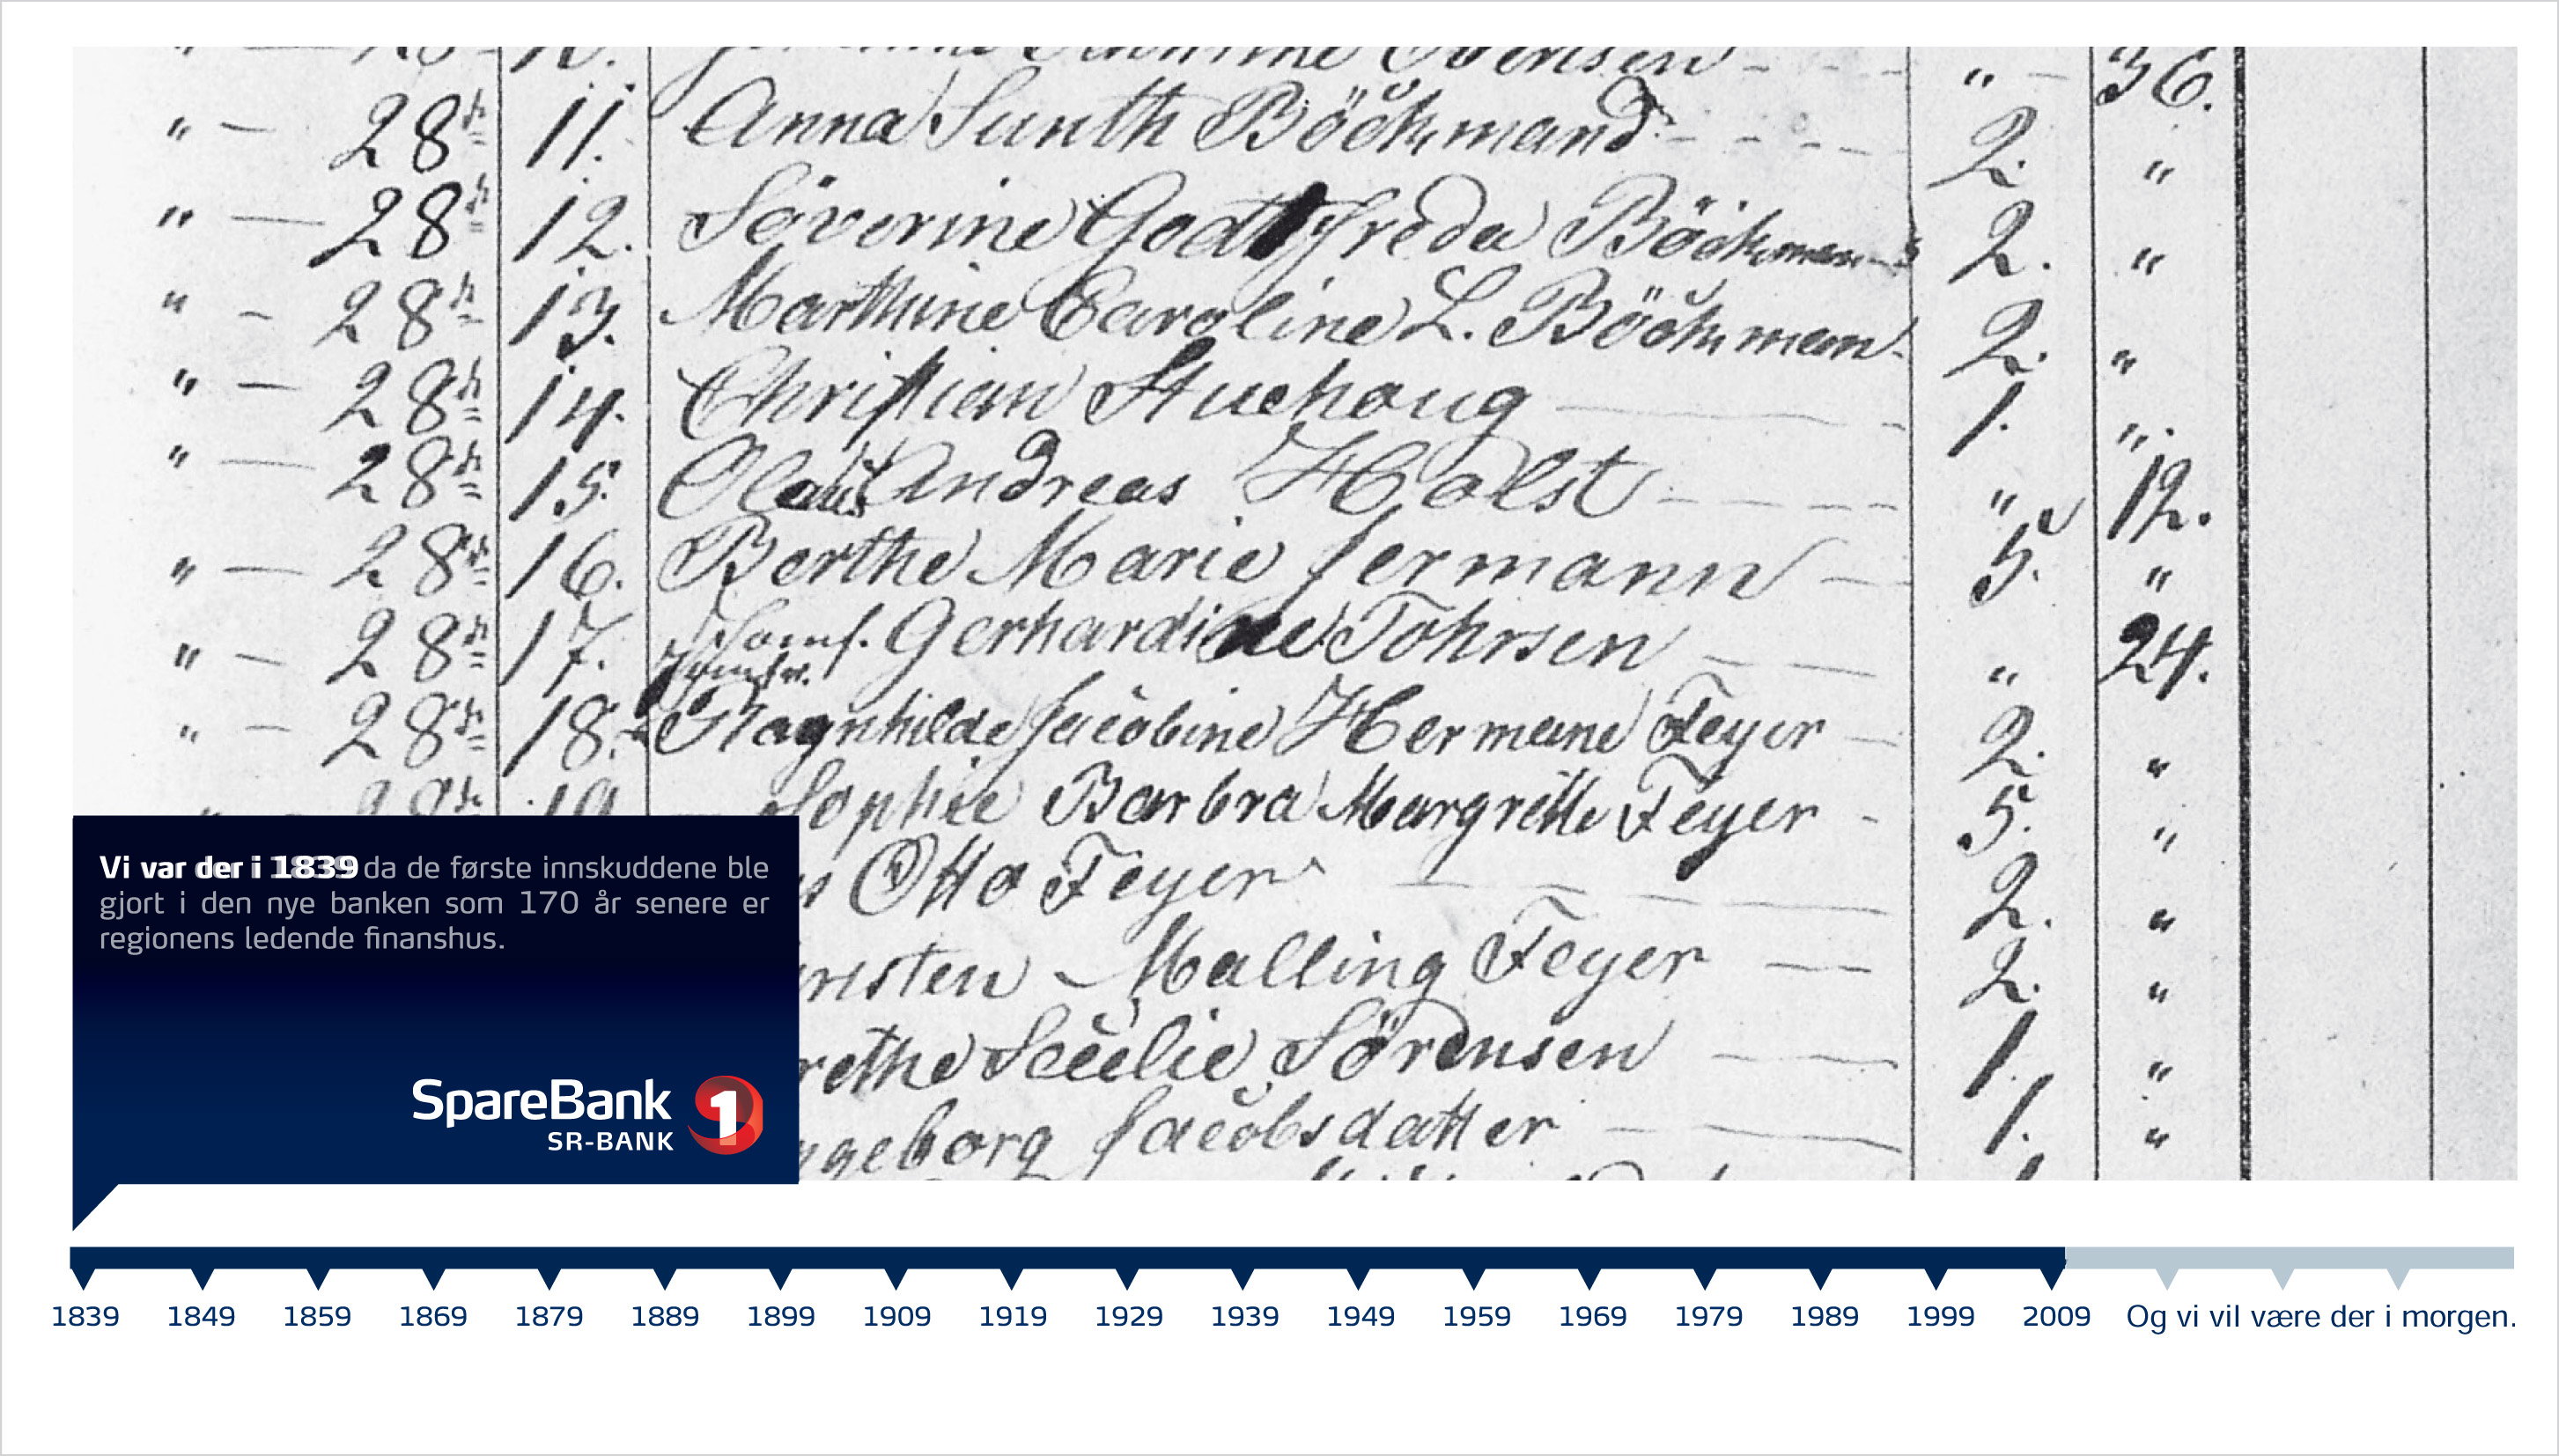 36.
" — 28 11. Anna Sunth Böckmand 2. "
" — 28 12. Söverine Godtfreda Böckman 2. "
" — 28 13. Marthine Caroline L. Böckman 2. "
" — 28 14. Christian Stuehoug 1. "
" — 28 15. Olaus Andreas Holst " 12.
" — 28 16. Berthe Marie Jermann 5. "
" — 28 17. Jomf. Gerhardine Tohrsen " 24.
Jomfr.
" — 28 18. Ragnhilde Jacobine Hermane Feyer 2. "
Sophie Barbra Margrethe Feyer 5. "
Otto Feyer 2. "
Malling Feyer 2. "
Sörensen 1. "
Jacobsdatter 1. "
Vi var der i 1839 da de første innskuddene ble
gjort i den nye banken som 170 år senere er
regionens ledende finanshus.
SpareBank 1
SR-BANK
1839 1849 1859 1869 1879 1889 1899 1909 1919 1929 1939 1949 1959 1969 1979 1989 1999 2009 Og vi vil være der i morgen.